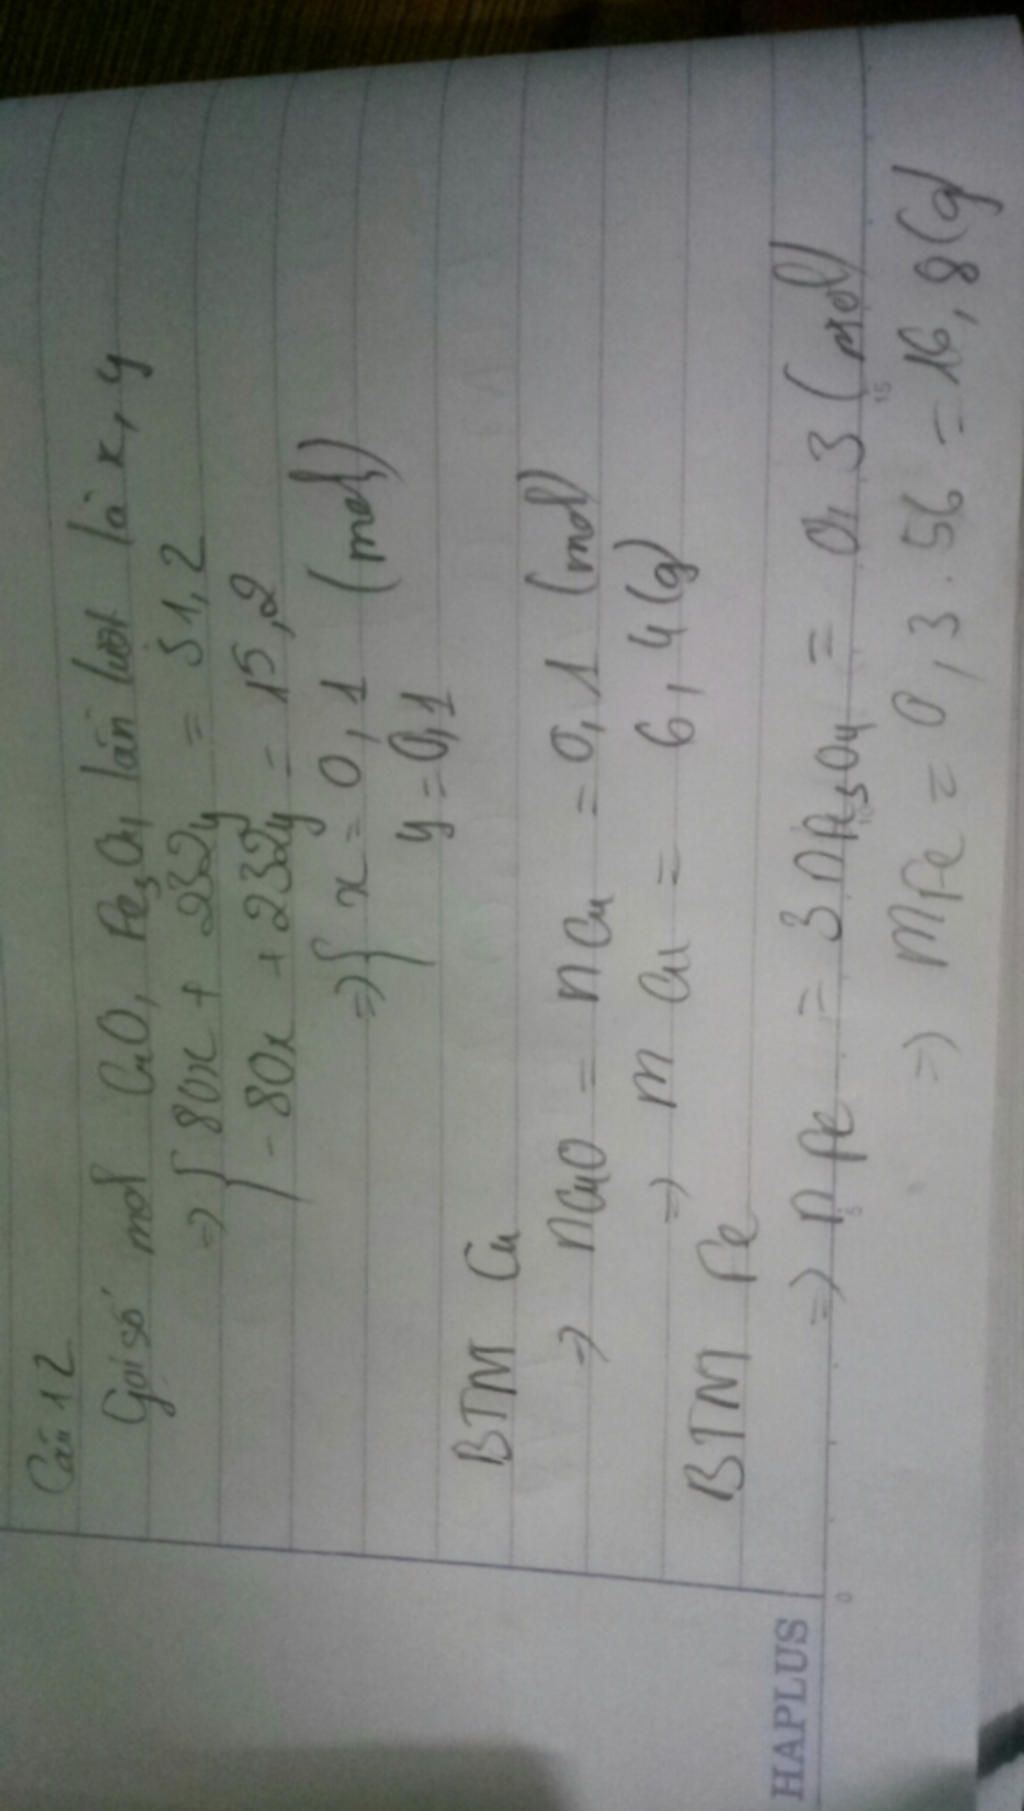 Câu 12
Gọi số mol CuO, Fe3O4 lần lượt là x, y
=> { 80x + 232y = 31,2
-80x + 232y = 15,2
=> { x = 0,1 (mol)
y = 0,1
BTM Cu
=> nCuO = nCu = 0,1 (mol)
=> mCu = 6,4 (g)
BTM Fe
=> nFe = 3nFe3O4 = 0,3 (mol)
=> mFe = 0,3.56 = 16,8 (g)
HAPLUS
0 5 10 15